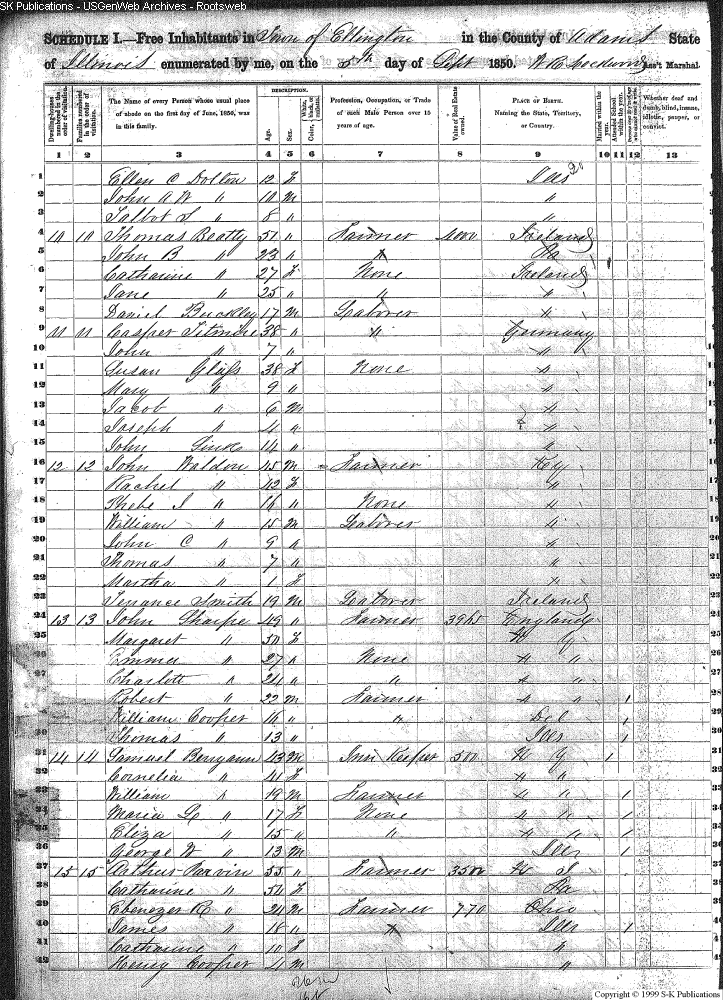 SK Publications - USGenWeb Archives - Rootsweb
SCHEDULE I.—Free Inhabitants in Town of Ellington in the County of Adams State
of Illinois enumerated by me, on the 5th day of Sept 1850. Ass't Marshal.
Dwelling-houses numbered in the order of visitation.
Families numbered in the order of visitation.
The Name of every Person whose usual place of abode on the first day of June, 1850, was in this family.
DESCRIPTION.
Age.
Sex.
Color, White, black, or mulatto.
Profession, Occupation, or Trade of each Male Person over 15 years of age.
Value of Real Estate owned.
PLACE OF BIRTH. Naming the State, Territory, or Country.
Married within the year.
Attended School within the year.
Whether deaf and dumb, blind, insane, idiotic, pauper, or convict.
1 2 3 4 5 6 7 8 9 10 11 12 13
1 Ellen C Dolton 12 f Ills
2 John A W " 10 m "
3 Talbot S " 8 " "
4 10 10 Thomas Beatty 51 " Farmer 4000 Ireland
5 John B " 23 " " Pa
6 Catharine " 27 f None Ireland
7 Jane " 25 " " "
8 Daniel Buckley 17 m Laborer "
9 11 11 Casper Titmire 38 " " Germany
10 John " 7 " "
11 Susan Glass 38 f None "
12 Mary " 9 " "
13 Jacob " 6 m "
14 Joseph " 4 " "
15 John Links 14 " "
16 12 12 John Waldon 45 m Farmer Ky
17 Rachel " 42 f "
18 Phebe J " 16 " None "
19 William " 15 m Laborer "
20 John C " 9 " "
21 Thomas " 7 " "
22 Martha " 1 f "
23 Terrance Smith 19 m Laborer Ireland
24 13 13 John Sharpe 49 " Farmer England
25 Margaret " 50 f N Y
26 Emmer " 27 " None " "
27 Charlott " 24 " " " "
28 Robert " 22 m Farmer " " 1
29 William Cooper 16 " " Del 1
30 Thomas " 13 " Ills 1
31 14 14 Samuel Benyann 43 m Inn Keeper 500 N Y 1
32 Cornelia " 41 f " "
33 William " 19 m Farmer " " 1
34 Maria L " 17 f None " " 1
35 Eliza " 15 " " " " 1
36 George W " 13 m Ills 1
37 15 15 Arthur Parvin 55 " Farmer 3500 N J
38 Catharine " 50 f Pa
39 Ebenezer R " 24 m Farmer 770 Ohio
40 James " 18 " " Ills 1
41 Catharine " 10 f "
42 Henry Cooper 4 m "
Copyright © 1999 S-K Publications